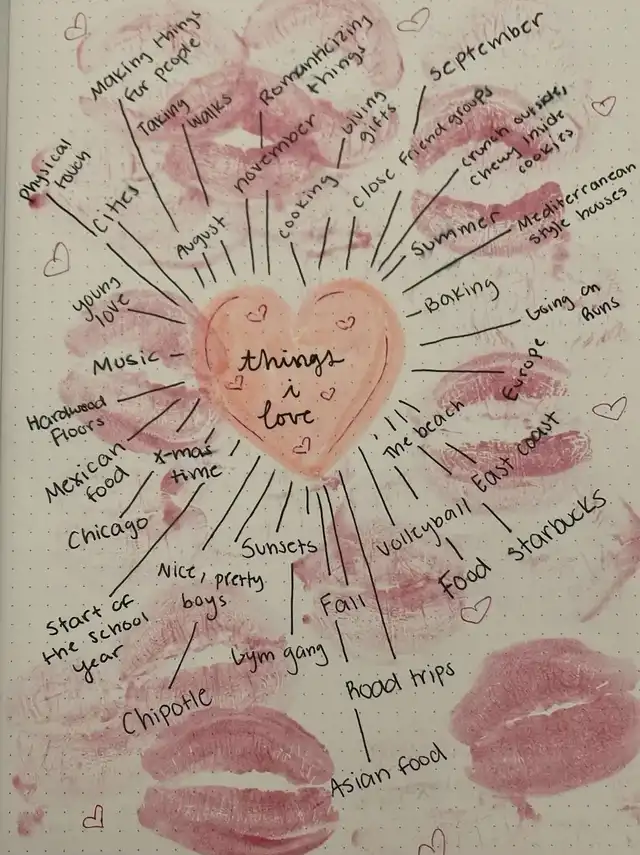 things
i
love
Making things
for people
Taking
Walks
Romanticizing
things
november
Giving
gifts
September
Close Friend groups
crunch outside,
chewy inside
cookies
cooking
August
Physical
touch
Cities
Summer
Mediterranean
style houses
Baking
Going on
Runs
young
love
Music
Europe
Hardwood
Floors
Mexican
food
x-mas
time
Chicago
The beach
East coast
Starbucks
Volleyball
Food
Sunsets
Nice, pretty
boys
Start of
the school
year
Fall
Gym gang
Road trips
Chipotle
Asian food